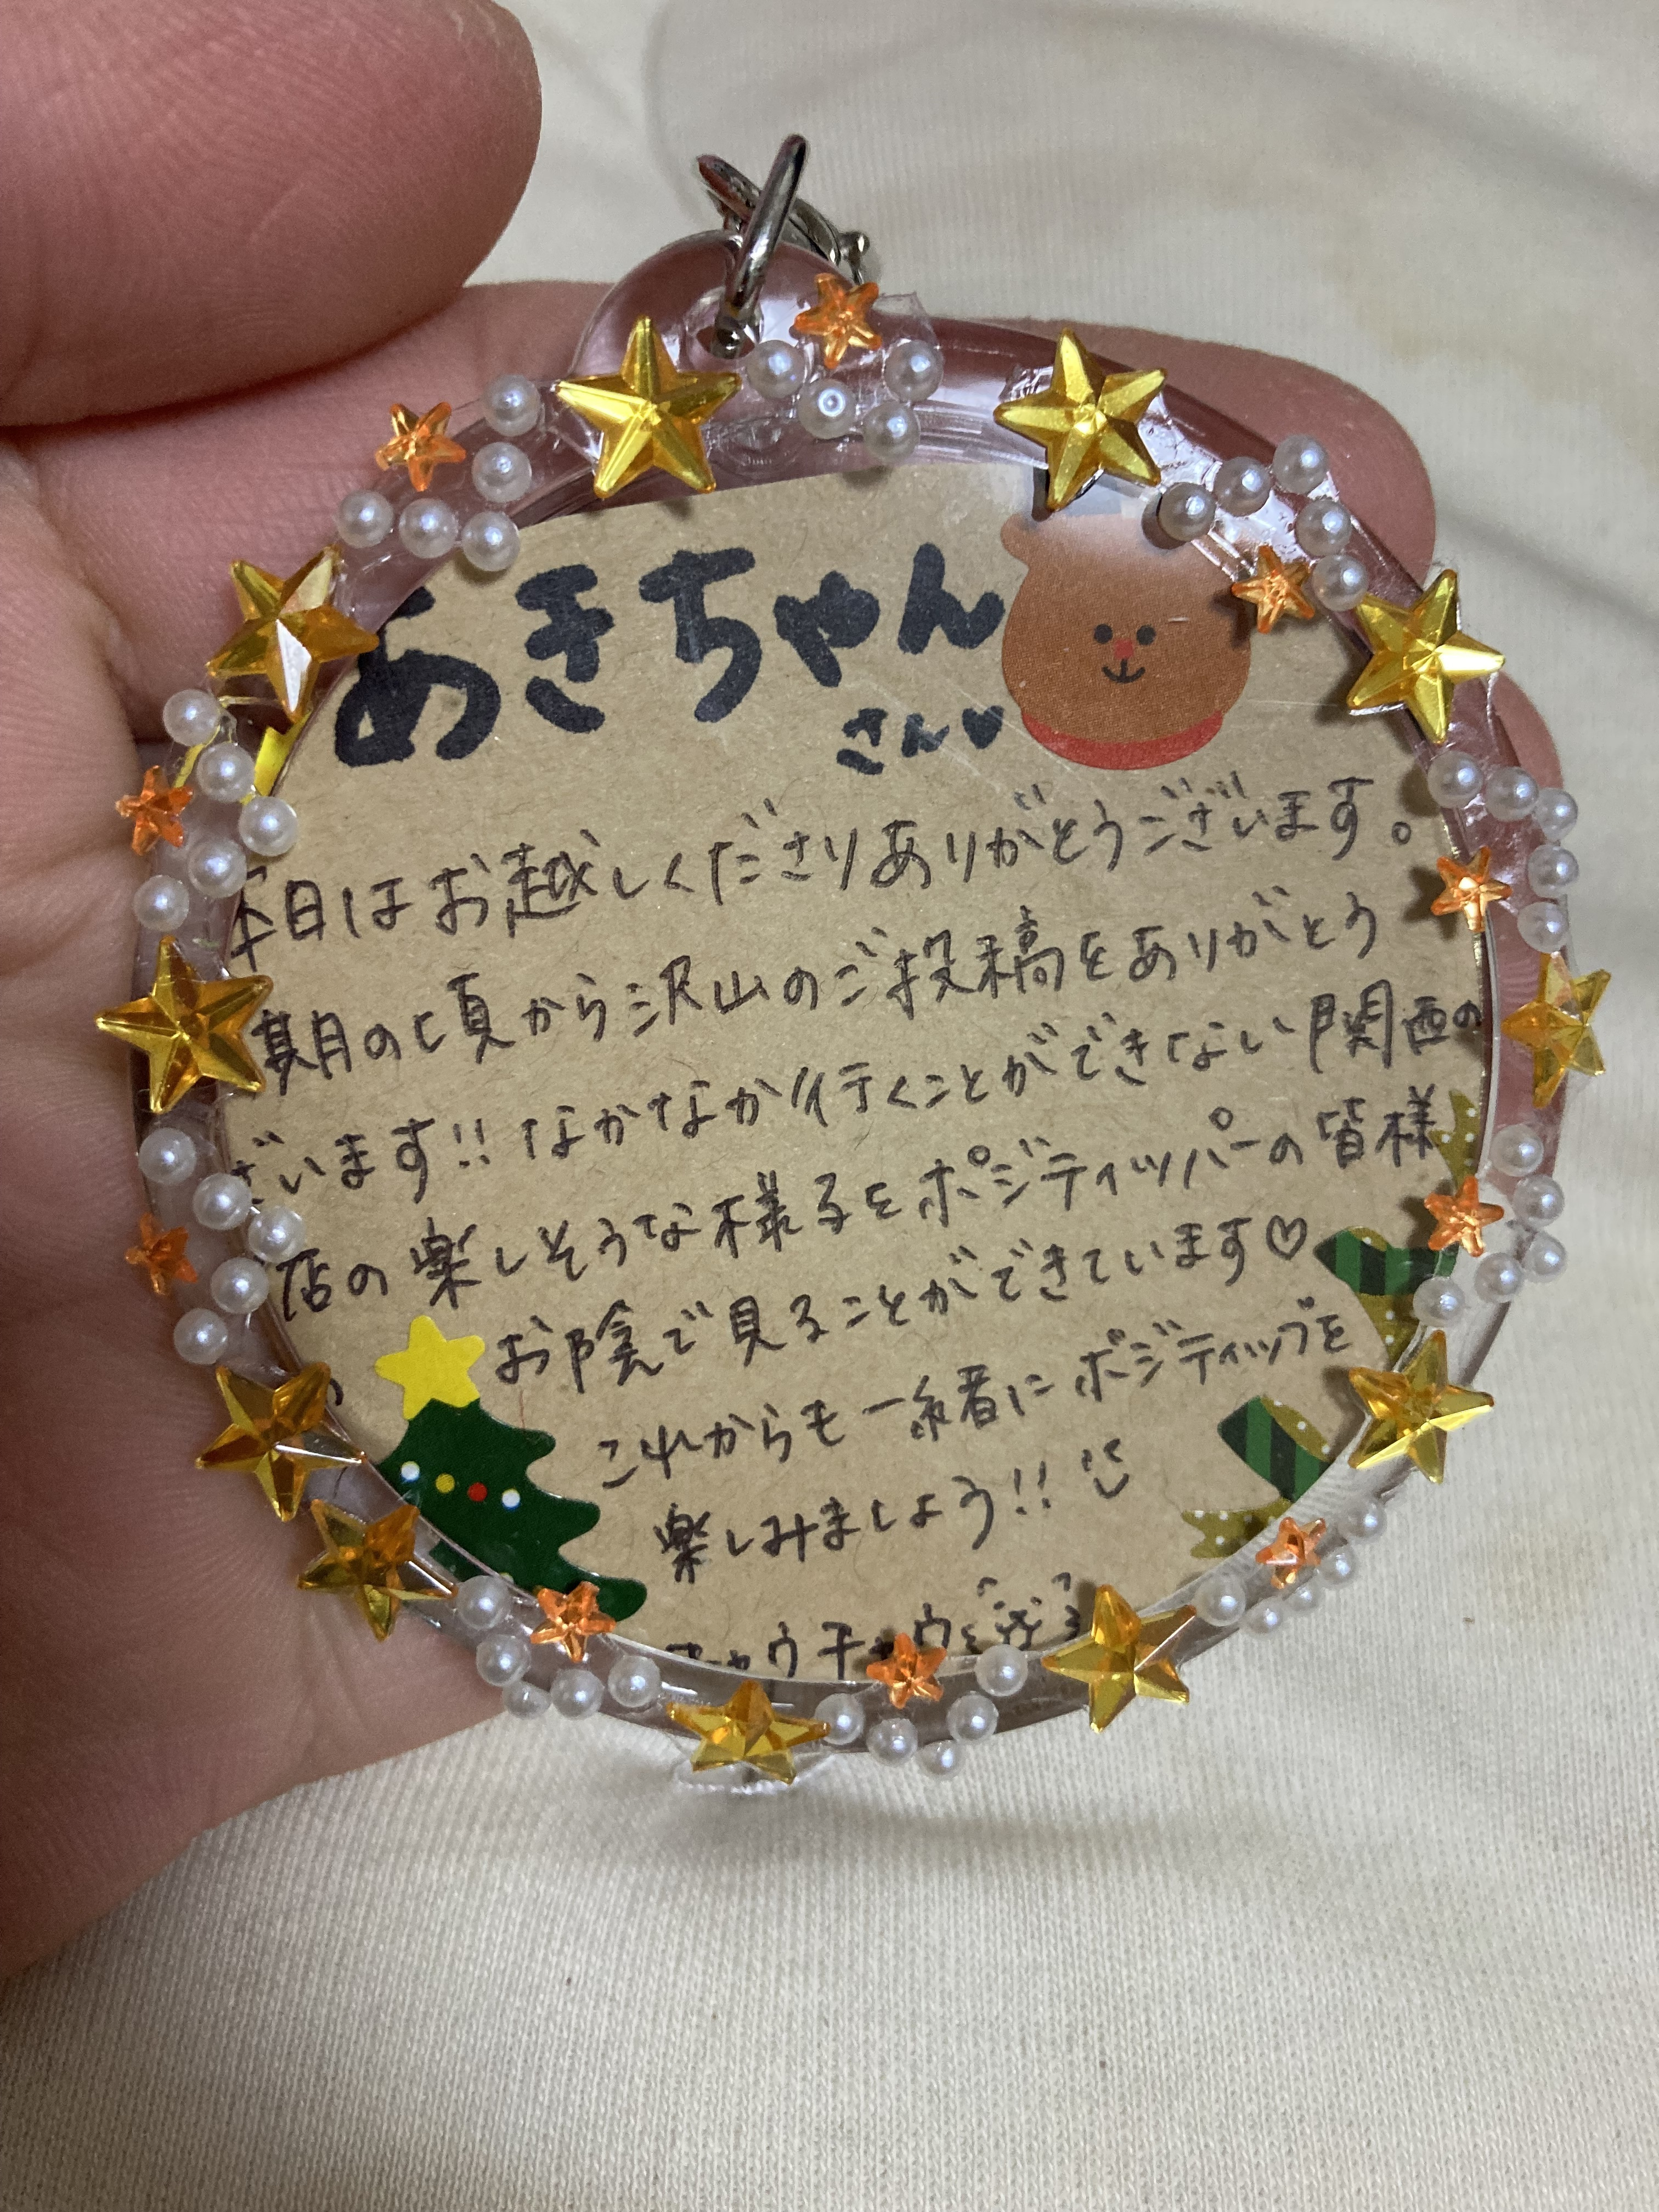 あきちゃん
さん♥
本日はお越しくださりありがとうございます。
期の頃から沢山のご投稿をありがとう
ざいます!! なかなか行くことができない関西の
店の楽しそうな様子をポジティッパーの皆様
の
お陰で見ることができています♡
これからも一緒にポジティップを
楽しみましょう!!
チャウチャウ